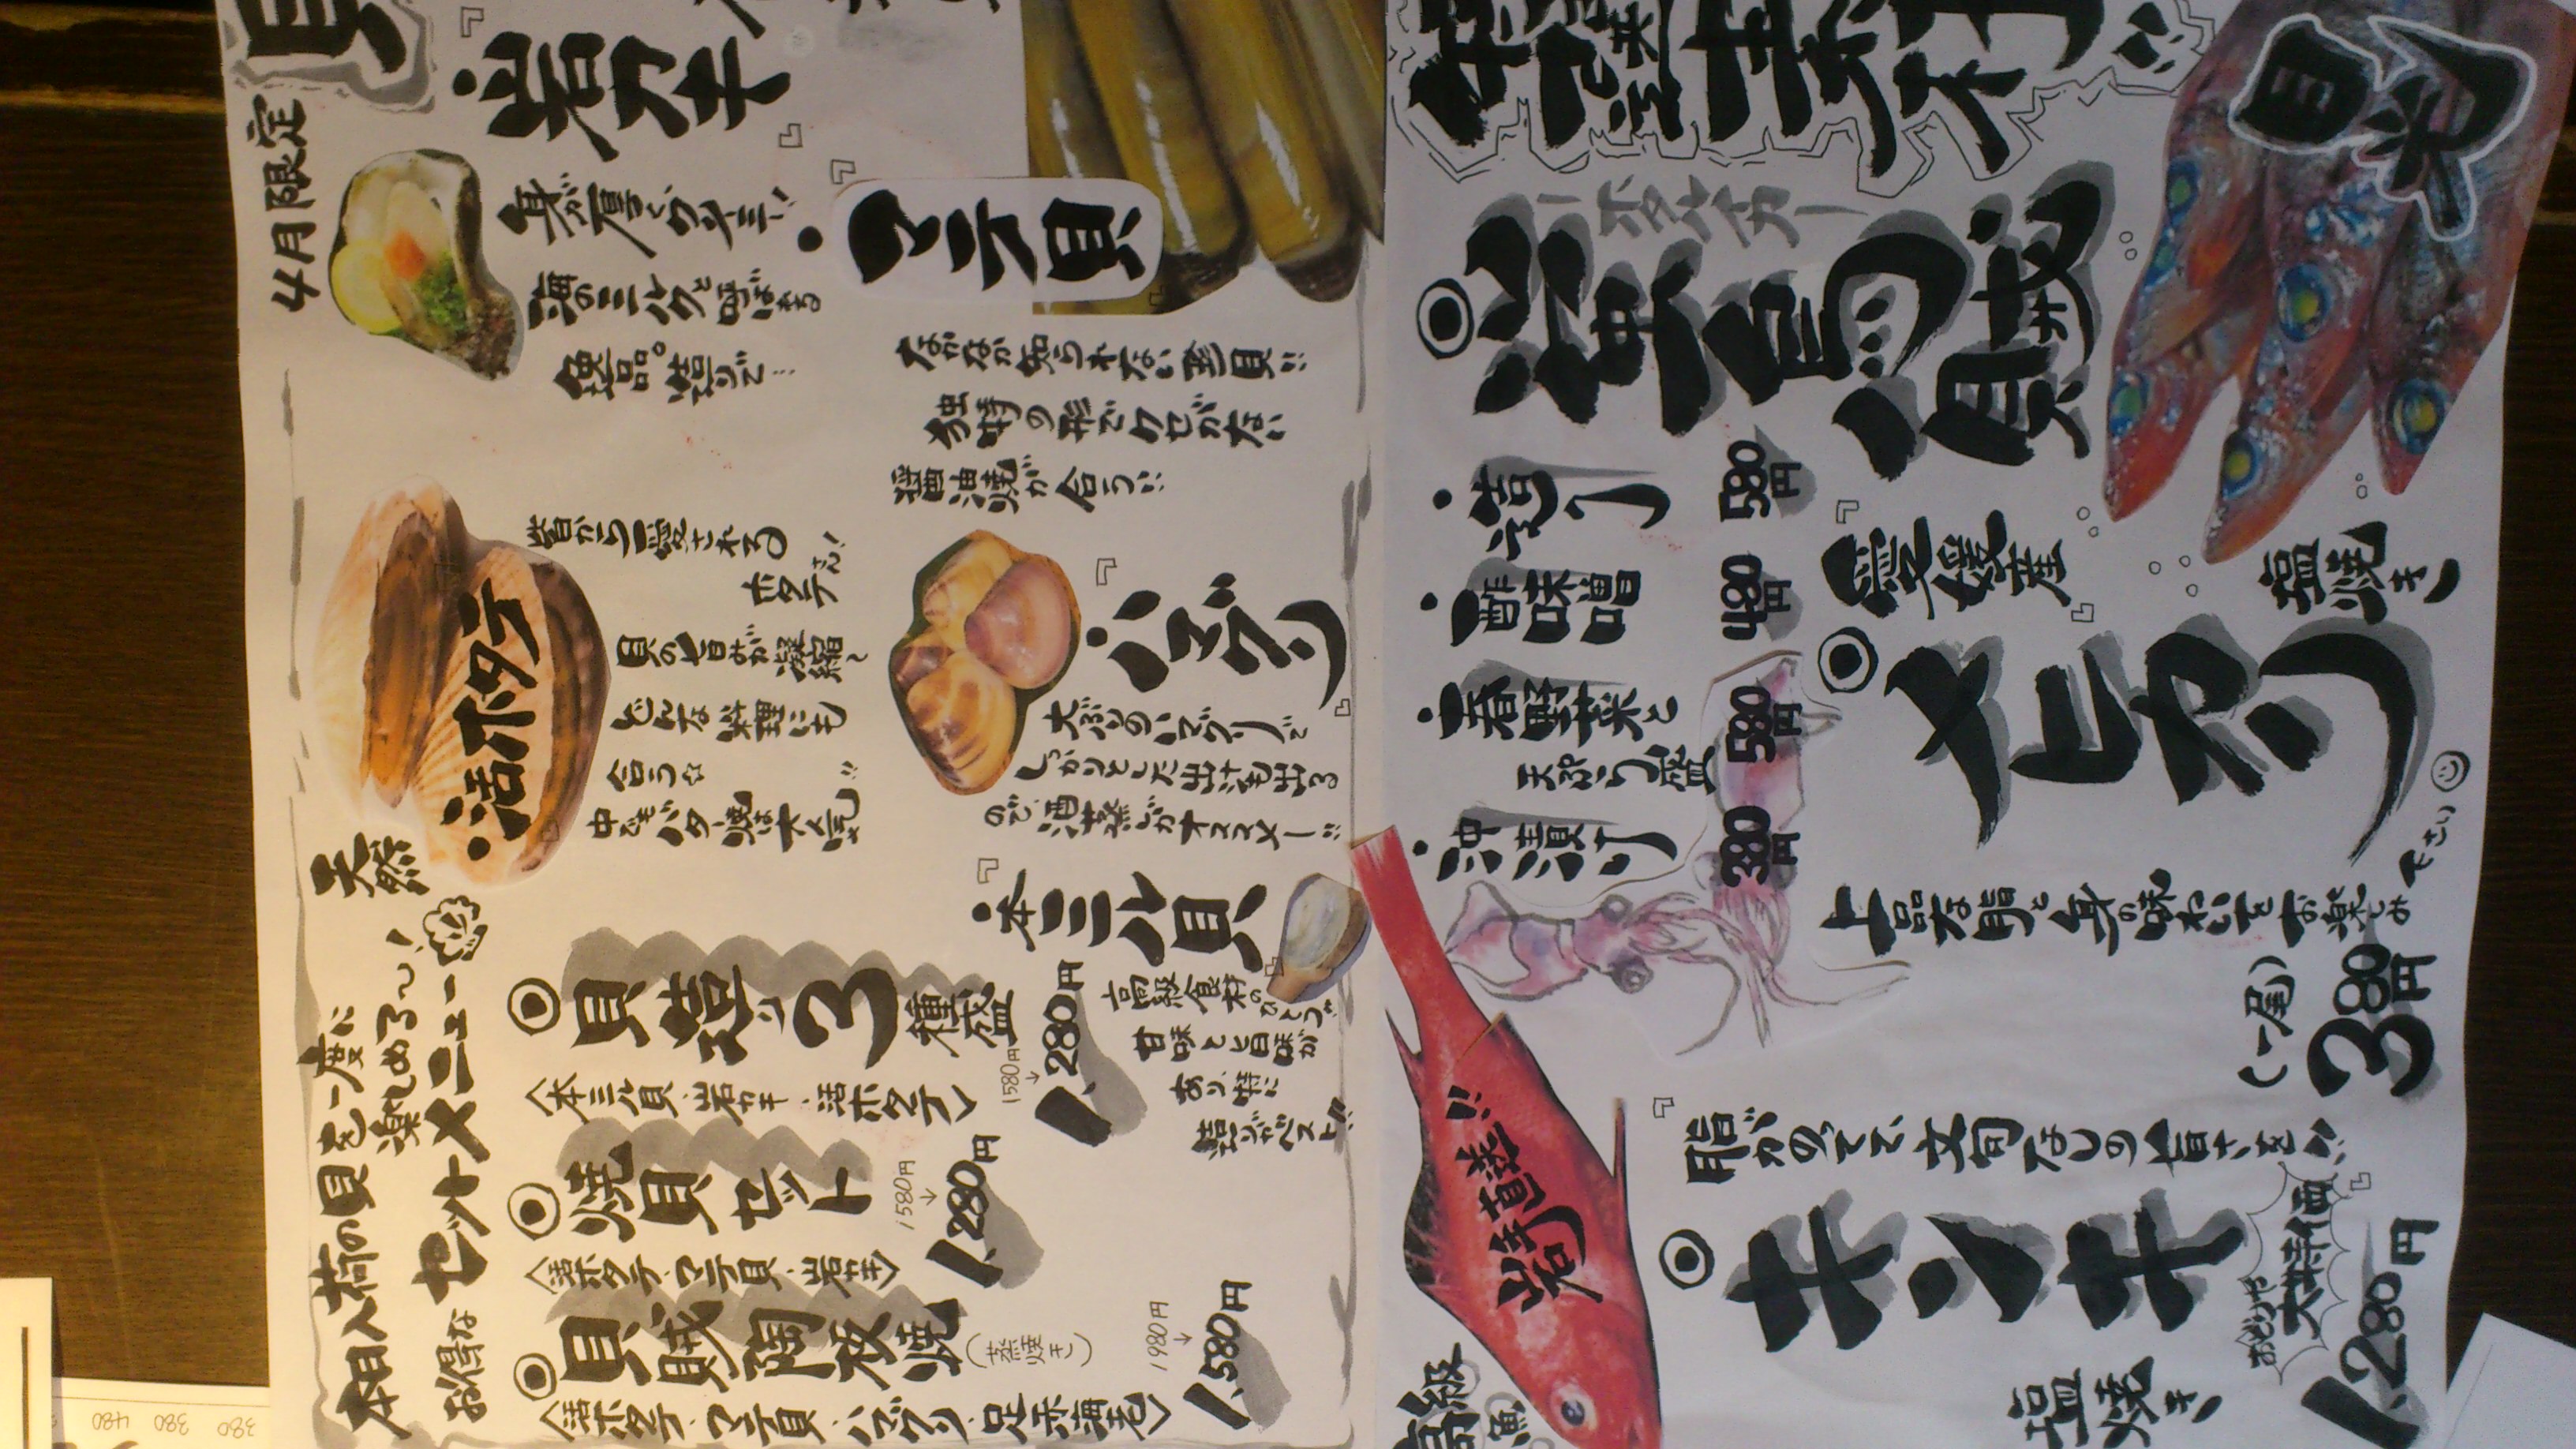 4月限定
『
・岩ガキ
』
身が厚くクリーミー!
海のミルクと呼ばれる
逸品。造りで…
『
・マテ貝
なかなか知られない型貝!!
独特の形でクセがない
醤油焼が合う!!
天然
・活ホタテ
昔から愛される
ホタテさん!
貝の旨みが凝縮〜
どんな料理にも
合う☆
中でもバター焼は大人気!!
『
・ハマグリ
』
大ぶりのハマグリで
しっかりとした出汁も出る
ので酒蒸しがオススメー!!
『
・本ミル貝
』
高級食材のひとつ!!
甘味と旨味が
あり、特に
造りがベスト!!
本日入荷の貝を一度に
楽しめる〜!
お得なセットメニュー
◎貝造り3種盛
〈本ミル貝・岩ガキ・活ホタテ〉
1580円
↓
1,280円
◎焼貝セット
〈活ホタテ・マテ貝・岩ガキ〉
1580円
↓
1,280円
◎貝賊陶板焼
(蒸焼き)
〈活ホタテ・マテ貝・ハマグリ・足赤海老〉
1980円
↓
1,580円
ホタルイカ
◎蛍烏賊
・造り 580円
・酢味噌 480円
・春野菜と
天ぷら盛 580円
・沖漬け 380円
目光
『
愛媛産
』
◎メヒカリ
塩焼き
上品な脂と身の味わいをお楽しみ
下さい
(一尾)
380円
岩手直送!!
高級
魚
『
脂がのってて文句なしの旨さを!!
』
◎キンキ
塩焼き
大特価
1,280円
480
380
380